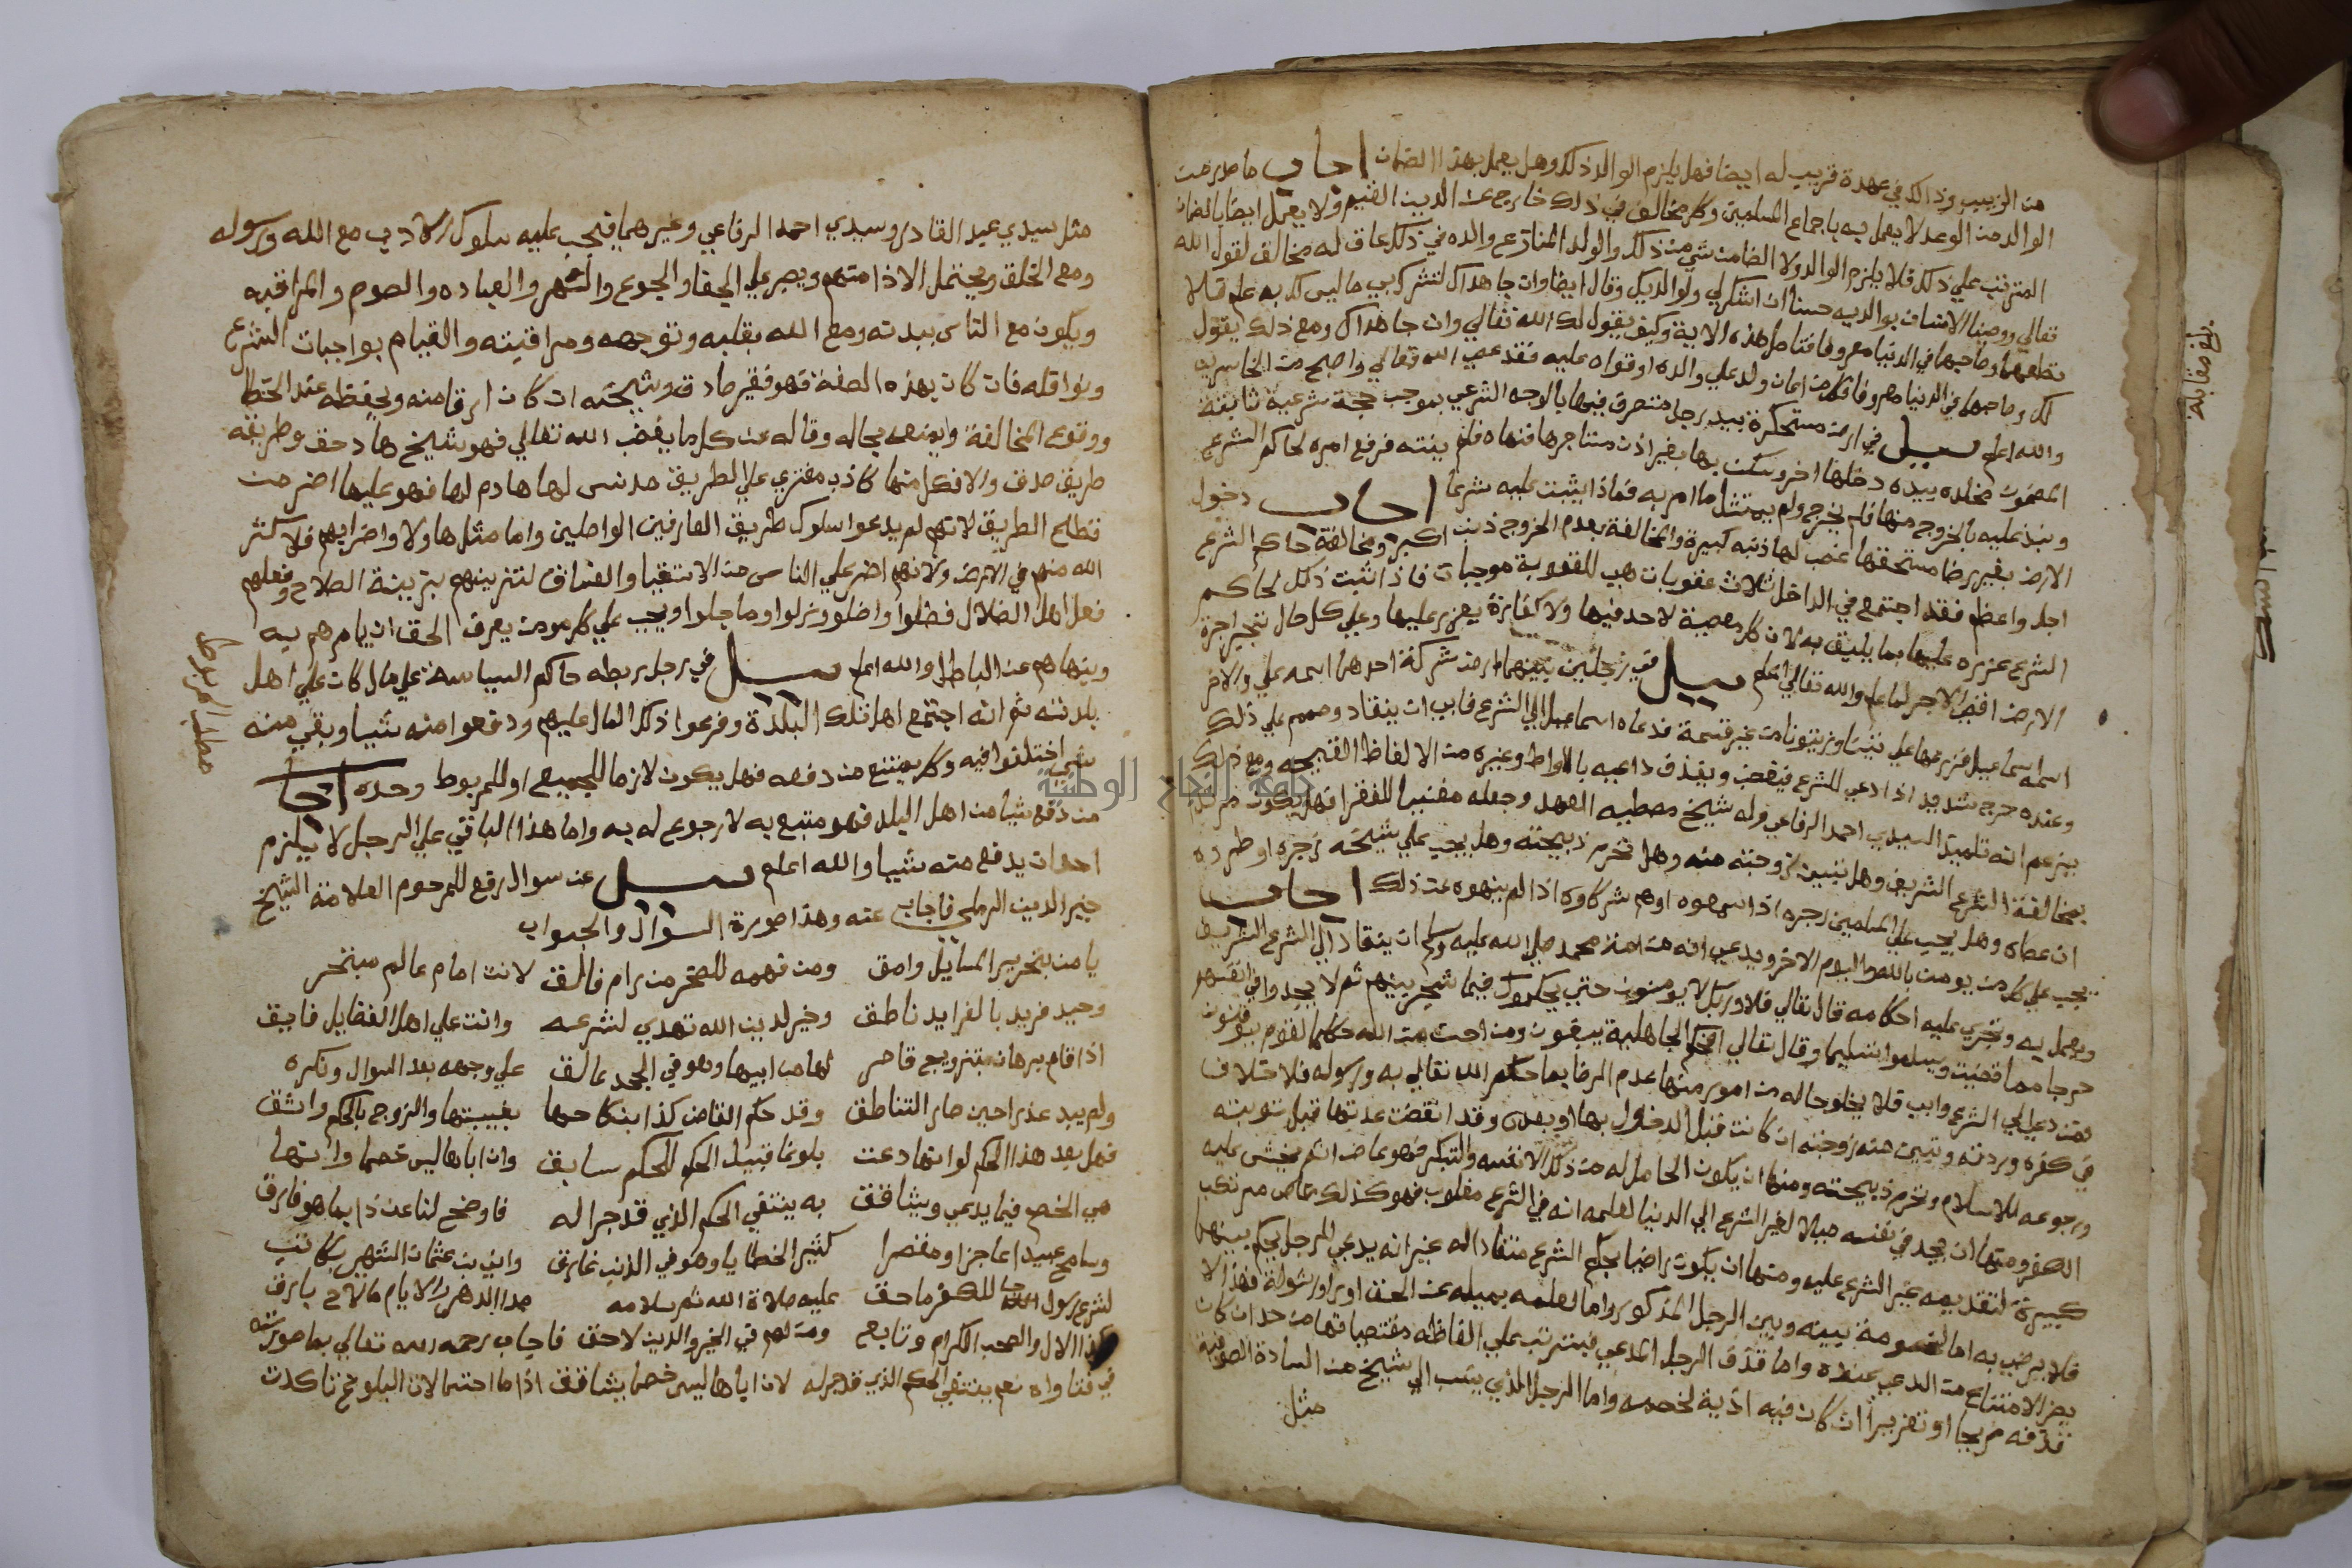 من الزبيب وذالك في عهدة قريب له ايضا فهل يلزم الوالد ذلك وهل يعمل بهذا الضمان اجاب ما صدر من
الوالد من الوعد لا يعمل به باجماع المسلمين وكل مخالف في ذلك خارج عن الدين القيم ولا يعمل ايضا بالضمان
المترتب علي ذلك فلا يلزم الوالد ولا الضامن شي من ذلك والولد المنازع والده في ذلك عاق له مخالف لقول الله
تعالي ووصينا الانسان بوالديه حسنا ان اشكر لي ولوالديك وقال ايضا وان جاهداك لتشرك بي ما ليس لك به علم فلا
تطعهما وصاحبهما في الدنيا معروفا فتامل هذه الاية وكيف يقول لك الله تعالي وان جاهداك ومع ذلك يقول
لك وصاحبهما في الدنيا معروفا فكل من اعان ولد علي والده او قواه عليه فقد عصي الله تعالي واصبح من الخاسرين
والله اعلم سيل في ارض مستحكرة بيد رجل متصرف فيها بالوجه الشرعي بموجب حجة شرعية ثابتة
المضمون مخلده بيده دخلها اخر وسكن بها بغير اذن مستاجرها فنهاه فلم ينته فرفع امره لحاكم الشرع
ونبذ عليه بالخروج منها فلم يخرج ولم يمتثل ما امر به فماذا يثبت عليه شرعا اجاب دخول
الارض بغير رضا مستحقها غصب لها ذنبه كبيرة والمخالفة بعدم الخروج ذنب اكبر ومخالفة حاكم الشرع
اجل واعظم فقد اجتمع في الداخل ثلاث عقوبات هي للعقوبة موجبات فاذا ثبت ذلك لحاكم
الشرع عزره عليها بما يليق به لان كل معصية لا حد فيها ولا كفارة يعزر عليها وعلي كل حال تجبر اجرة
الارض افتي الاجر لما علم والله تعالي اعلم سيل في رجلين بينهما ارض شركة احدهما اسمه علي والاخر
اسمه اسماعيل فزرعها علي تينا وزيتونا من غير قسمة فدعاه اسماعيل الي الشرع فابي ان ينقاد وصمم علي ذلك
وعنده حرج شديد اذا دعي للشرع فيغضب ويقذف داعيه باللواط وغيره من الالفاظ القبيحه ومع ذلك
يزعم انه تلميذ السيدي احمد الرفاعي وله شيخ معطيه العهد وجعله مفتيا للفقرا فهل يكون مرتدا
بمخالفة الشرع الشريف وهل تبين زوجته منه وهل تحرم ذبيحته وهل يجب علي شيخه زجره او طرده
ان عصاه وهل يجب علي المسلمين زجره اذا سمعوه او هم شركاوه اذا لم ينهوه عن ذلك اجاب
يجب علي كل من يومن بالله واليوم الاخر ويدعي انه من امة محمد صلي الله عليه وسلم ان ينقاد الي الشرع الشريف
ويعمل به وتجري عليه احكامه قال تعالي فلا وربك لا يومنون حتي يحكموك فيما شجر بينهم ثم لا يجدوا في انفسهم
حرجا مما قضيت ويسلموا تسليما وقال تعالي افحكم الجاهلية يبغون ومن احسن من الله حكما لقوم يوقنون
فمن دعي الي الشرع وابي فلا يخلو حاله من امور منها عدم الرضا بما حكم الله تعالي به ورسوله فلا خلاف
في كفره وردته وتبين منه زوجته ان كانت قبل الدخول بها او بعده وقد انقضت عدتها قبل توبته
ورجوعه للاسلام وتحرم ذبيحته ومنها ان يكون الحامل له من ذلك الانفسه والتكبر فهو عاص اثم يخشي عليه
الكفر ومنها ان يجد في نفسه ميلا لغير الشرع الي الدنيا لعلمه انه في الشرع مغلوب فهو كذلك عاص مرتكب
كبيرة لتقديمه غير الشرع عليه ومنها ان يكون راضيا بحكم الشرع منقادا له غير انه يدعي لرجل يحكم بينهما
فلا يرضي به اما لخصومة بينه وبين الرجل المذكور واما لعلمه بميله عن الحق او براو رشوة فهذا لا
يضر الامتناع من الدعي عنده واما قذف الرجل المدعي فيترتب علي الفاظه مقتضياتها من حد ان كان
قذفه صريحا او تعزيرا ان كان فيه اذية لخصمه واما الرجل الذي ينتسب الي شيخ من السادة الصوفية
مثل
بلغ مقابلة
مثل سيدي عبد القادر وسيدي احمد الرفاعي وغيرهما فيجب عليه سلوك الادب مع الله ورسوله
ومع الخلق ويحتمل الاذا منهم ويصبر علي الجفا والجوع والسهر والعباده والصوم والمراقبه
ويكون مع الناس ببدنه ومع الله بقلبه وتوجهه ومراقبته والقيام بواجبات الشرع
ونوافله فان كان بهذه الصفة فهو فقير صادق وشيخه ان كان ارقا منه ويحفظه عند الخطا
ووقوع المخالفة وينهضه بحاله وقاله عن كل ما يغضب الله تعالي فهو شيخ هاد حق وطريقه
طريق صدق والا فكل منهما كاذب مفتري علي الطريق مدنس لها هادم لها فهو عليها اضر من
قطاع الطريق لانهم لم يدعوا سلوك طريق العارفين الواصلين واما مثل هاولا واضرابهم فلا كثر
الله منهم في الارض ولانهم اضر علي الناس من الاشقيا والفساق لتزينهم بزينة الصلاح وفعلهم
فعل اهل الضلال فضلوا واضلوا وزلوا وما جلوا ويجب علي كل مومن يعرف الحق ان يامرهم به
وينهاهم عن الباطل والله اعلم سيل في رجل ربطه حاكم السياسة علي مال كان علي اهل
بلدته ثم انه اجتمع اهل تلك البلدة وفرعوا ذلك المال عليهم ودفعوا منه شيا وبقي منه
شي اختلفوا فيه وكل يمتنع من دفعه فهل يكون لازما للجميع او للمربوط وحده اجاب
من دفع شيا من اهل البلد فهو متبع به لا رجوع له به واما هذا الباقي علي الرجل لا يلزم
احد ان يدفع منه شيا والله اعلم سيل عن سوال رفع للمرحوم العلامة الشيخ
خير الدين الرملي فاجاب عنه وهذا صورة السوال والجواب
يا من بتحرير المسايل وامق ومن فهمه للصخر من رام فالق لانت امام عالم متبحر
وحيد فريد بالفرايد ناطق وخير لدين الله تهدي لشرعه وانت علي اهل الفضايل فايق
اذا قام برهان بتزويج قاصر لها من ابيها وهو في الجحد عالق علي وجهه بعد السوال ونكره
ولم يبد عذرا حين صار التناطق وقد حكم القاض كذا بنكاحها بغيبتها والزوج بالحكم واثق
فهل بعد هذا الحكم لو انها دعت بلوغا قبيل الحكم للحكم سابق وان اباها ليس خصما وانها
هي الخصم فيما يدعي ويشاقق به ينتفي الحكم الذي قد جرا له فاوضح لنا عن ذا بما هو فارق
وسامح عبيدا عاجزا ومقصرا كثير الخطايا وهو في الذنب غارق وابن بن عثمان الشهير بكاتب
لشرع رسول الله للكفر ماحق عليه صلاة الله ثم سلامه مدا الدهر والايام ما لاح بارق
كذا الال والصحب الكرام وتابع ومن لهم في الخير والدين لاحق فاجاب رحمه الله تعالي بما صورته
في فتاواه نعم ينتفي الحكم الذي قد جرا له لان اباها ليس خصما يشاقق اذا ما احتمالات البلوغ تاكدت
مطلب المربوط
جامعة النجاح الوطنية